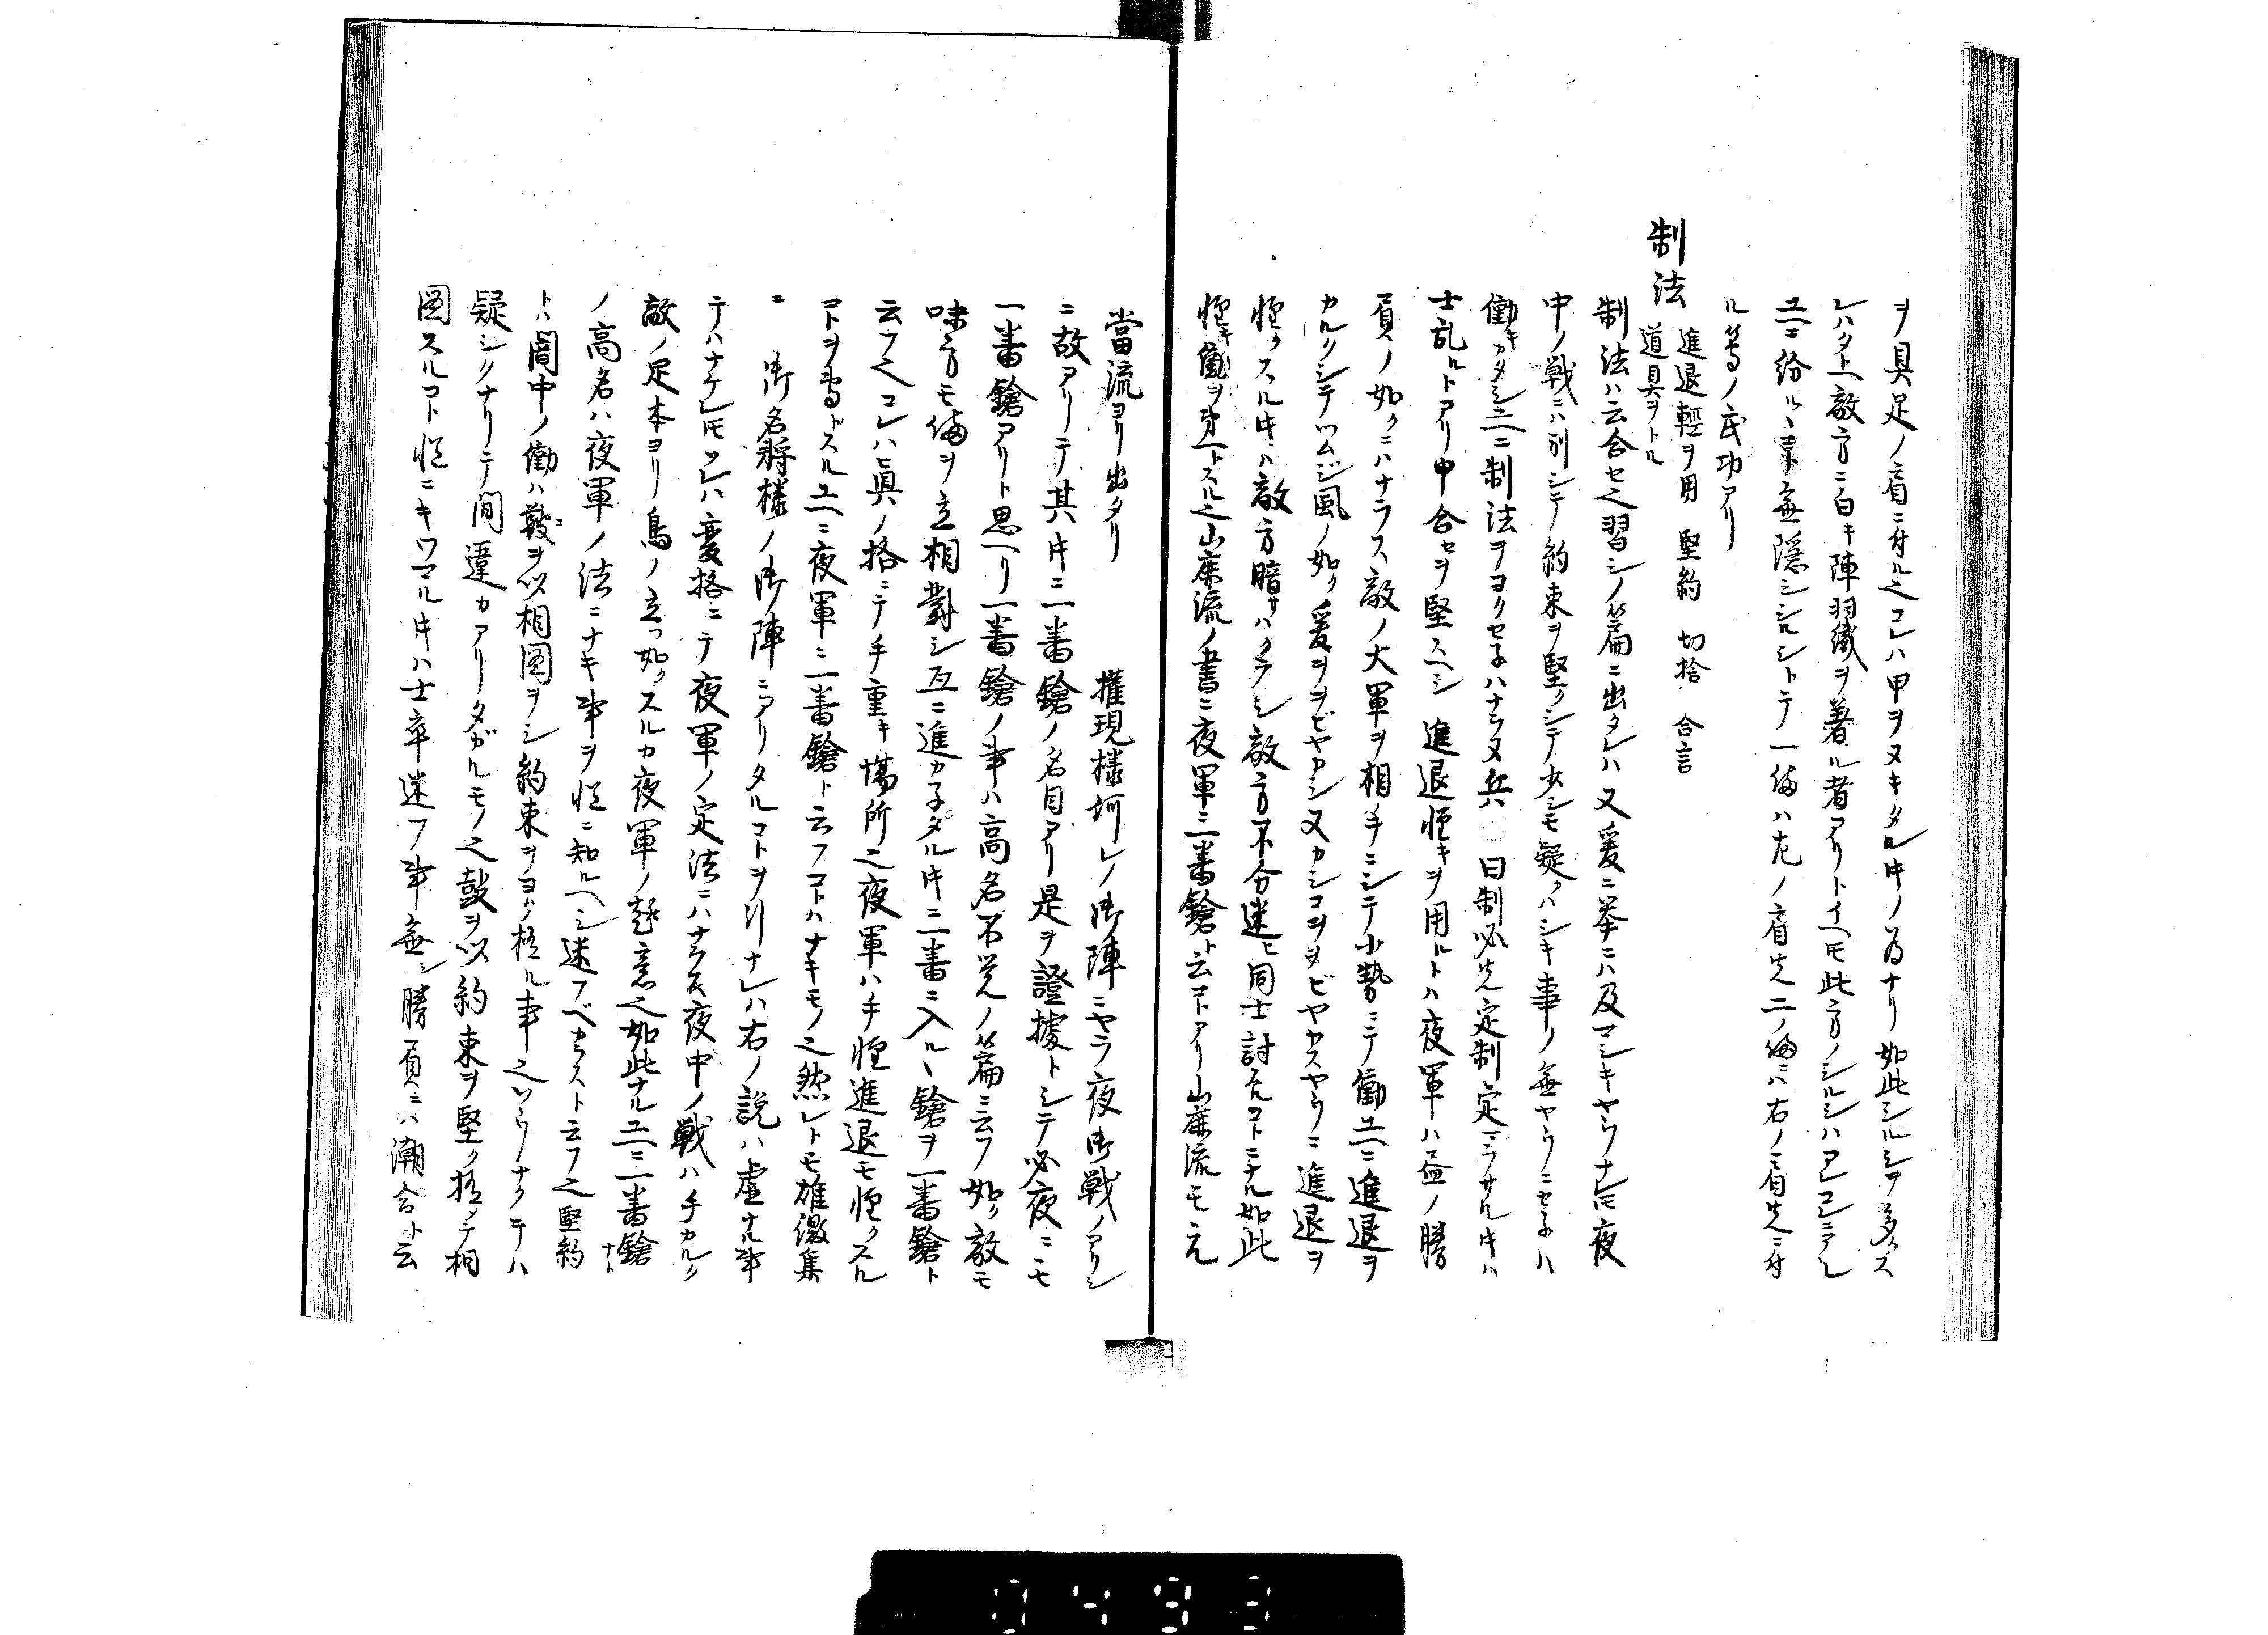 ヲ具足ノ肩ニ付ル之コレハ甲ヲヌキタル片ノ為ナリ如此シルシヲ多クス
レハタトヘ敵方ニ白キ陣羽織ヲ著ル者アリトイヘ𪜈此方ノシルシハアレコレニアル
ユヘニ紛ルヽコト無隠シシルシトテ一備ハ左ノ肩先二ノ備ニハ右ノ肩先ニ付
ル等ノ武功アリ
制法 進退輕ヲ用 堅約 切捨 合言
道具ヲトル
制法ハ云合セ之習シノ篇ニ出タレハ又爰ニ挙ニハ及マシキヤウナレ𪜈夜
中ノ戦ニハ別シテ約束ヲ堅クシテ少シモ疑ハシキ事ノ無ヤウニセ子ハ
働キカタシユヘニ制法ヲヨクセ子ハナラヌ兵ハ 曰制必先定制定ラサル片ハ
士乱ルトアリ申合セヲ堅スヘシ進退輕キヲ用ルトハ夜軍ハ昼ノ勝
負ノ如クニハナラス敵ノ大軍ヲ相手ニシテ小勢ニテ働ユヘニ進退ヲ
カルクシテツムジ風ノ如ク爰ヲヲビヤカシ又カシコヲヲビヤカスヤウニ進退ヲ
輕クスル片ハ敵方暗サハクラシ敵方不分迷ヒ同士討スルコトニナル如此
輕キ働ヲ第一トスル之山鹿流ノ書ニ夜軍ニ一番鎗ト云コトアリ山鹿流モ元
當流ヨリ出タリ 権現様何レノ御陣ニヤラ夜御戦ノアリシ
ニ故アリテ其片ニ一番鎗ノ名目アリ是ヲ證據トシテ必夜ニモ
一番鎗アリト思ヘリ一番鎗ノ事ハ高名不覚ノ篇ニ云フ如ク敵モ
味方モ備ヲ立相對シ互ニ進カ子タル片ニ一番ニ入ルヽ鎗ヲ一番鎗ト
云フ之コレハ眞ノ格ニテ手重キ場所之夜軍ハ手輕進退モ輕クスル
コトヲ専トスルユヘニ夜軍ニ一番鎗ト云フコトハナキモノ之然レトモ雄徹集
ニ 御名将様ノ御陣ニアリタルコトヲ引ナレハ右ノ説ハ虚ナル事
テハナケレ𪜈ソレハ変格ニテ夜軍ノ定法ニハナラス夜中ノ戦ハ手カルク
敵ノ足本ヨリ鳥ノ立ツ如クスルカ夜軍ノ趣意之如此ナルユヘニ一番鎗ナト
ノ高名ハ夜軍ノ法ニナキ事ヲ恒ニ知ルヘシ迷フベカラスト云フ之堅約
トハ闇中ノ働ハ鼓ヲ以相圖ヲシ約束ヲヨク極ル事之ソウナクテハ
疑シクナリテ間違カアリタガルモノ之鼓ヲ以約束ヲ堅ク極メテ相
圖スルコト恒ニキワマル片ハ士卒迷フ事無シ勝負ニハ潮合ト云